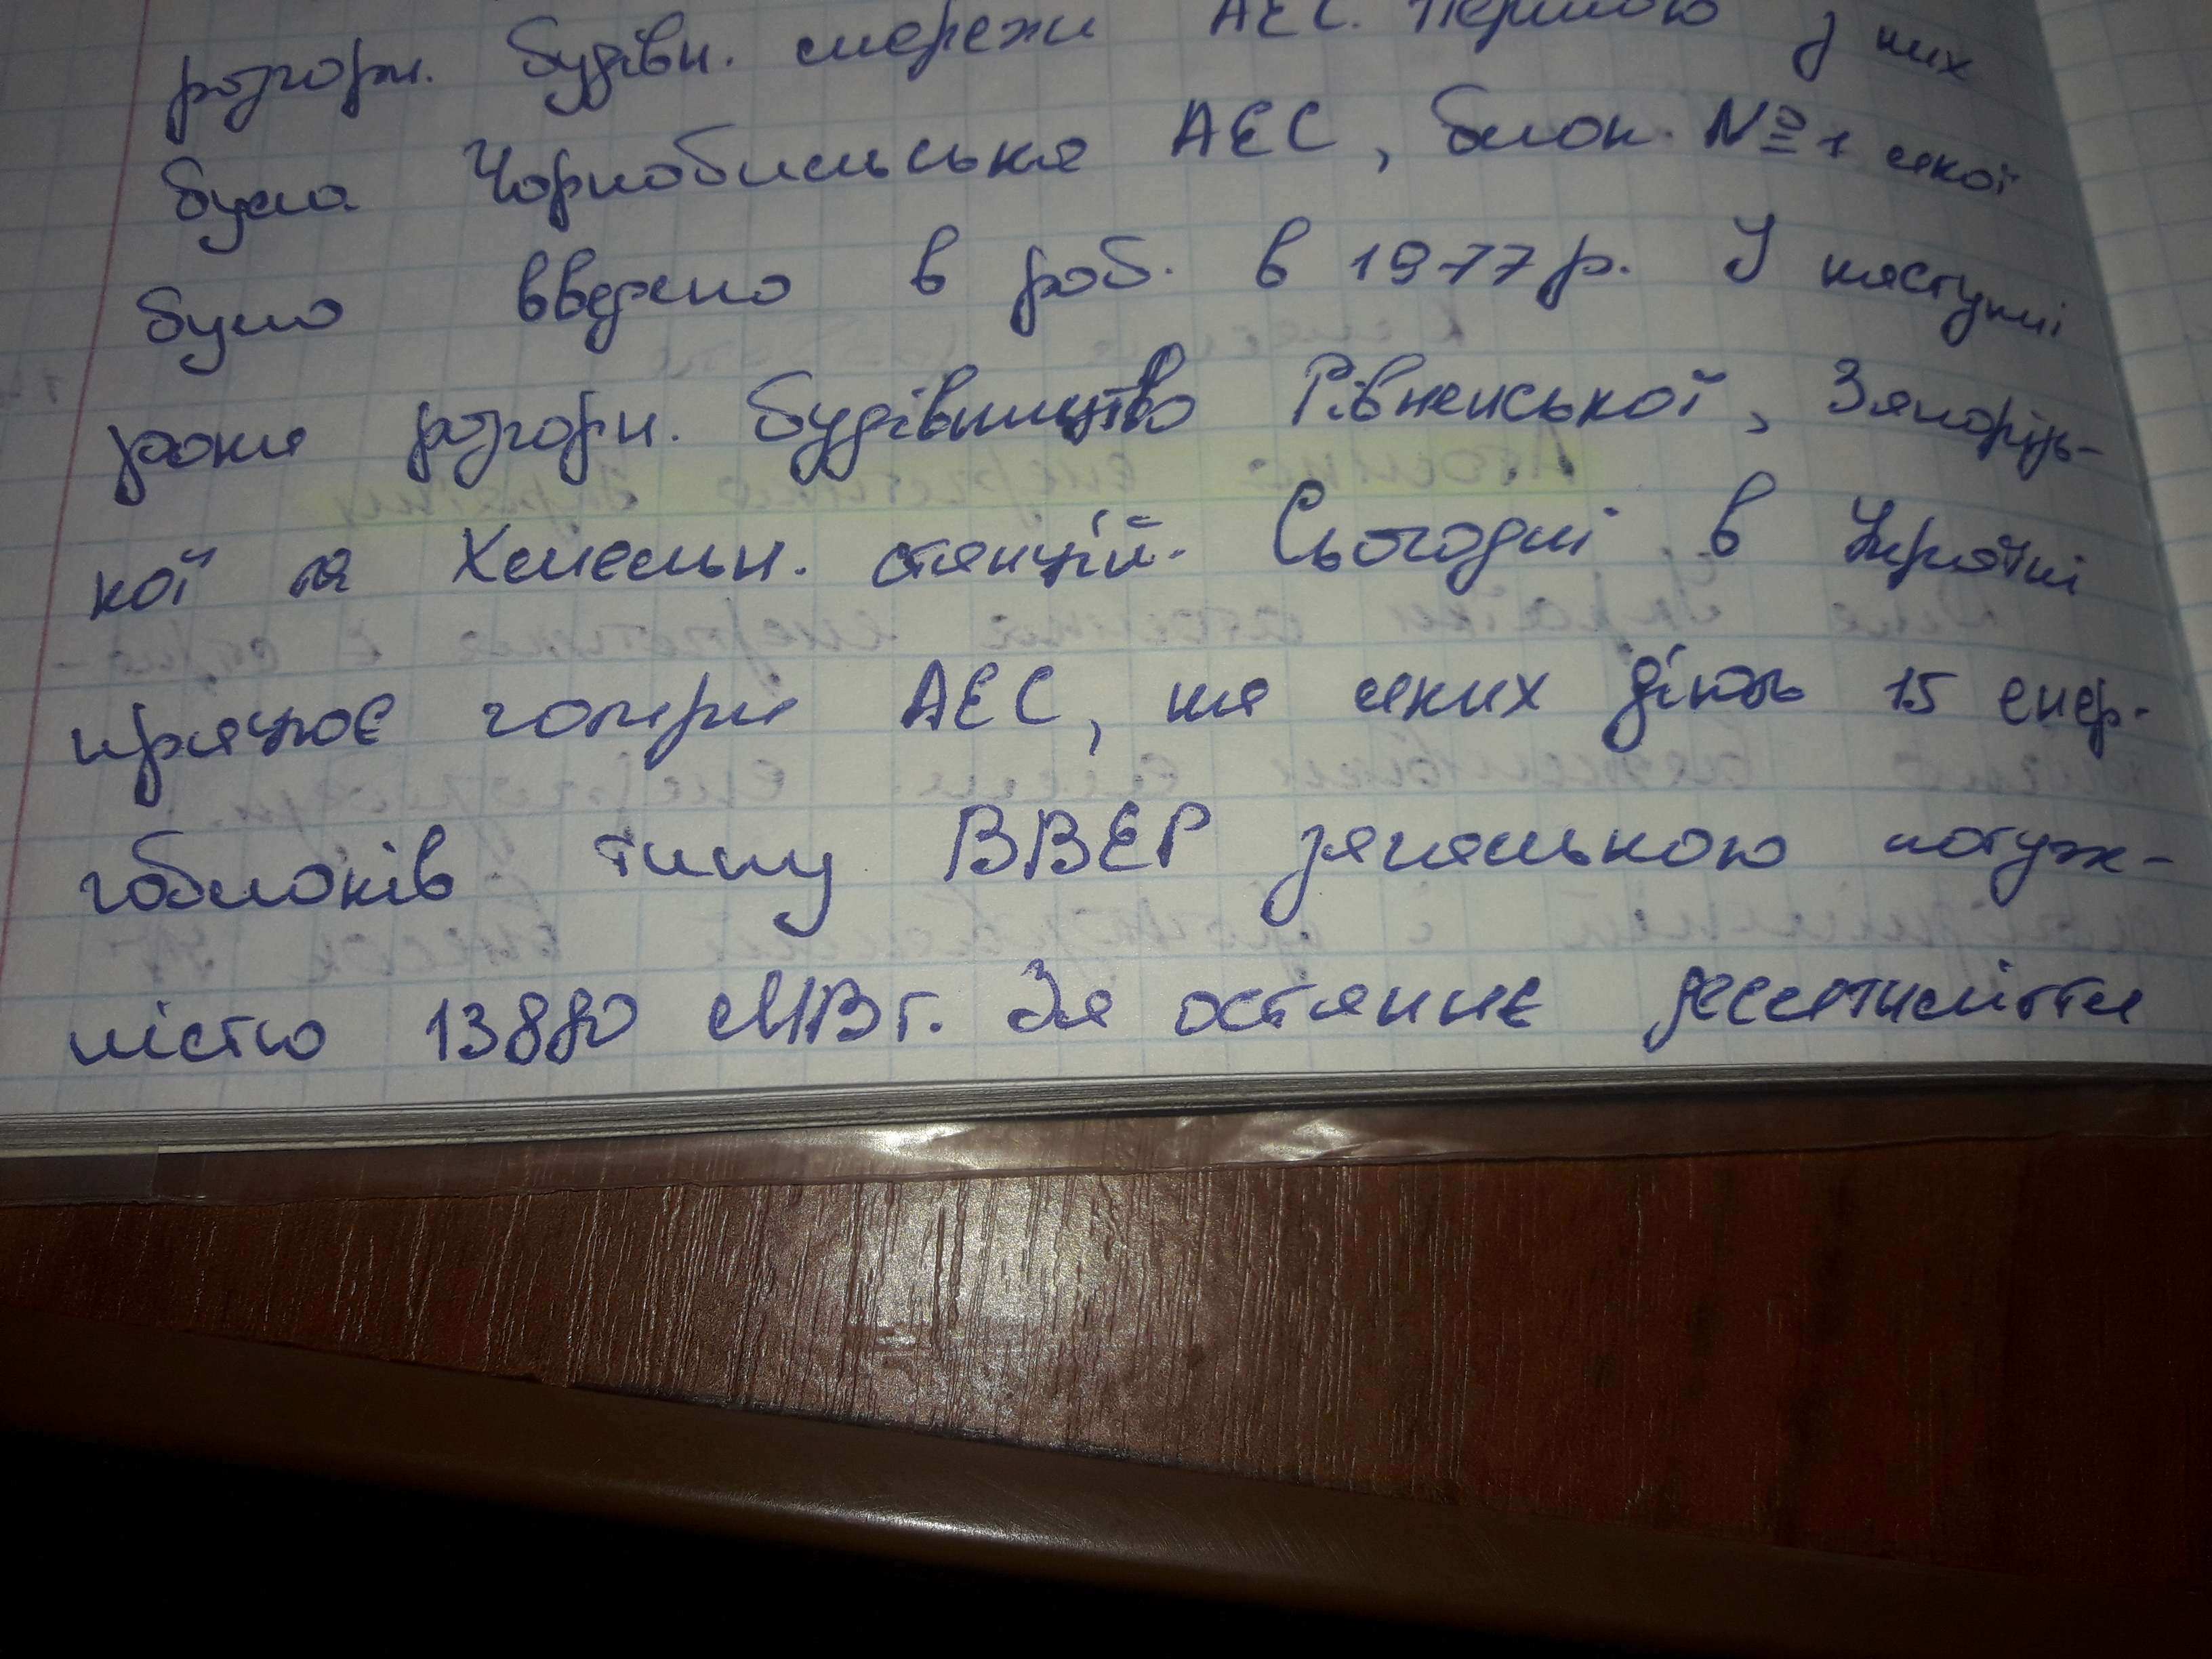 розгорн. будівн. мережи АЕС. Першою з них
була Чорнобильська АЕС, блок №1 якої
було введено в роб. в 1977р. У наступні
роки розгорн. будівництво Рівненської, Запорізь-
кої та Хмельн. станцій. Сьогодні в Україні
працює чотири АЕС, на яких діють 15 енер-
гоблоків типу ВВЕР загальною потуж-
ністю 13880 МВт. За останнє десятиліття